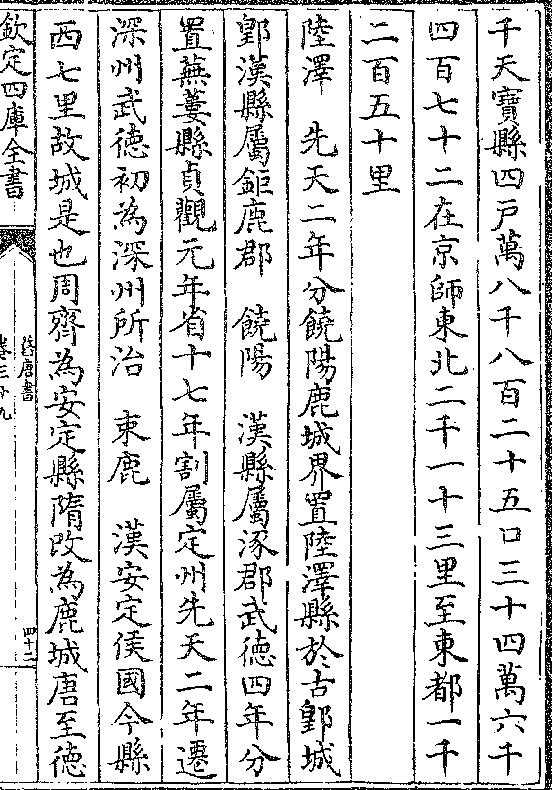 千天寶縣四戸萬八千八百二十五口三十四萬六千
四百七十二在京師東北二千一十三里至東都一千
二百五十里
陸澤　先天二年分饒陽鹿城界置陸澤縣於古鄡城
鄡漢縣屬鉅鹿郡　饒陽　漢縣屬涿郡武徳四年分
置蕪蔞縣貞觀元年省十七年割屬定州先天二年遷
深州武徳初為深州所治　束鹿　漢安定侯國今縣
西七里故城是也周齊為安定縣隋改為鹿城唐至徳
欽定四庫全書
舊唐書
卷三十九
四十二